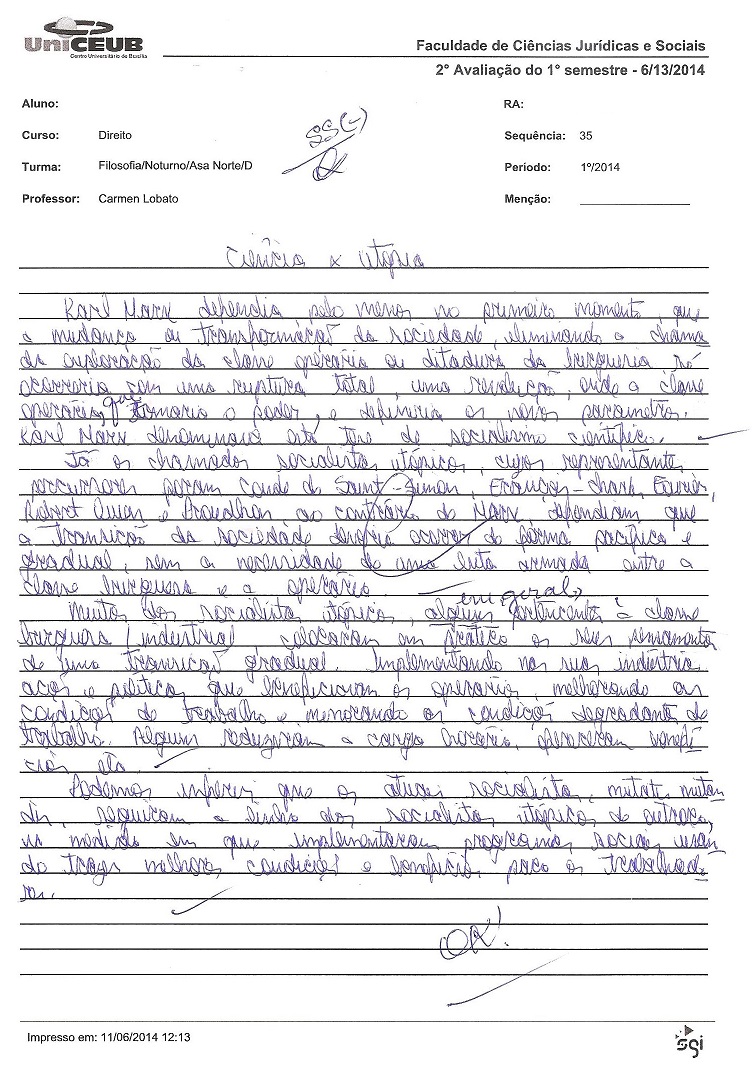 UniCEUB
Centro Universitário de Brasília
Faculdade de Ciências Jurídicas e Sociais
2° Avaliação do 1° semestre - 6/13/2014
Aluno:
RA:
Curso: Direito
SS(-)
Sequência: 35
Turma: Filosofia/Noturno/Asa Norte/D
Período: 1º/2014
Professor: Carmen Lobato
Menção:
Ciência x Utopia
Karl Marx defendia pelo menos no primeiro momento, que
a mudança ou transformação da sociedade, eliminando a chama
da exploração da classe operária ou ditadura da burguesia só
ocorreria com uma ruptura total, uma revolução, onde a classe
operária, que tomaria o poder, e definiria os novos parametros.
Karl Marx denominava esta tese de socialismo científico.
Já os chamados socialistas utópicos, cujos representantes
precursores foram Conde de Saint-Simon, François-Charles Fourier,
Robert Owen e Proudhon ao contrário de Marx, defendiam que
a transição da sociedade deveria ocorrer de forma pacífica e
gradual, sem a necessidade de uma luta armada entre a
classe burguesa e a operária.
em geral
Muitos dos socialistas utópicos, alguns pertencentes à classe
burguesa / industrial colocaram em prática os seus pensamentos
de uma transição gradual. Implementando nas suas indústrias
ações e políticas que beneficiavam os operários melhorando as
condições de trabalho e menorando as condições degradantes de
trabalho. Alguns reduziram a carga horária, ofereceram benefí
cios etc.
Podemos inferir que os atuais socialistas, mutatis mutan
dis, seguiram a linha dos socialistas utópicos de outrora,
na medida em que implementaram programas sociais visan
do trazer melhores condições e benefícios para os trabalhado
res.
OK!
Impresso em: 11/06/2014 12:13
sgi